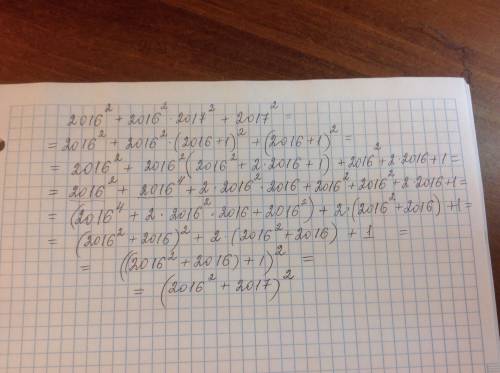 2016² + 2016² · 2017² + 2017² =
= 2016² + 2016² · (2016+1)² + (2016+1)² =
= 2016² + 2016² (2016² + 2·2016 + 1) + 2016² + 2·2016 + 1 =
= 2016² + 2016⁴ + 2·2016²·2016 + 2016² + 2016² + 2·2016 + 1 =
= (2016⁴ + 2·2016²·2016 + 2016²) + 2·(2016² + 2016) + 1 =
= (2016² + 2016)² + 2 (2016² + 2016) + 1 =
= ((2016² + 2016) + 1)² =
= (2016² + 2017)²